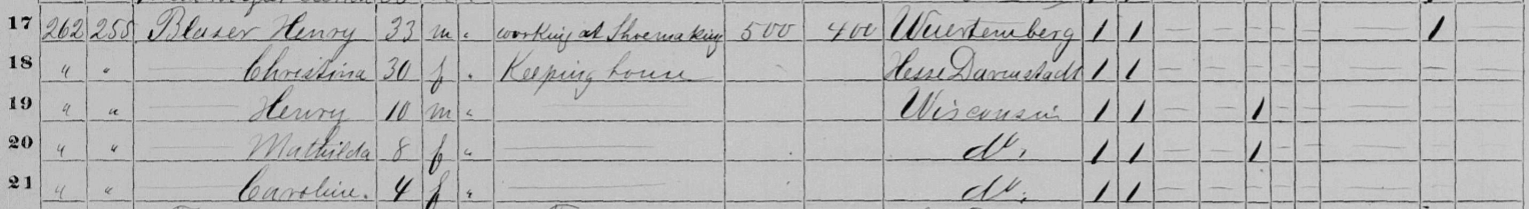 17 262 258 Blaser Henry 33 m " working at Shoemaking 500 400 Wuertemberg 1 1 — — — — — — 1
18 " " Christina 30 f " Keeping house Hesse Darmstadt 1 1 — — — — — —
19 " " Henry 10 m " Wisconsin 1 1 — — 1 — — —
20 " " Mathilda 8 f " do. 1 1 — — 1 — — —
21 " " Caroline. 4 f " do. 1 1 — — — — — —